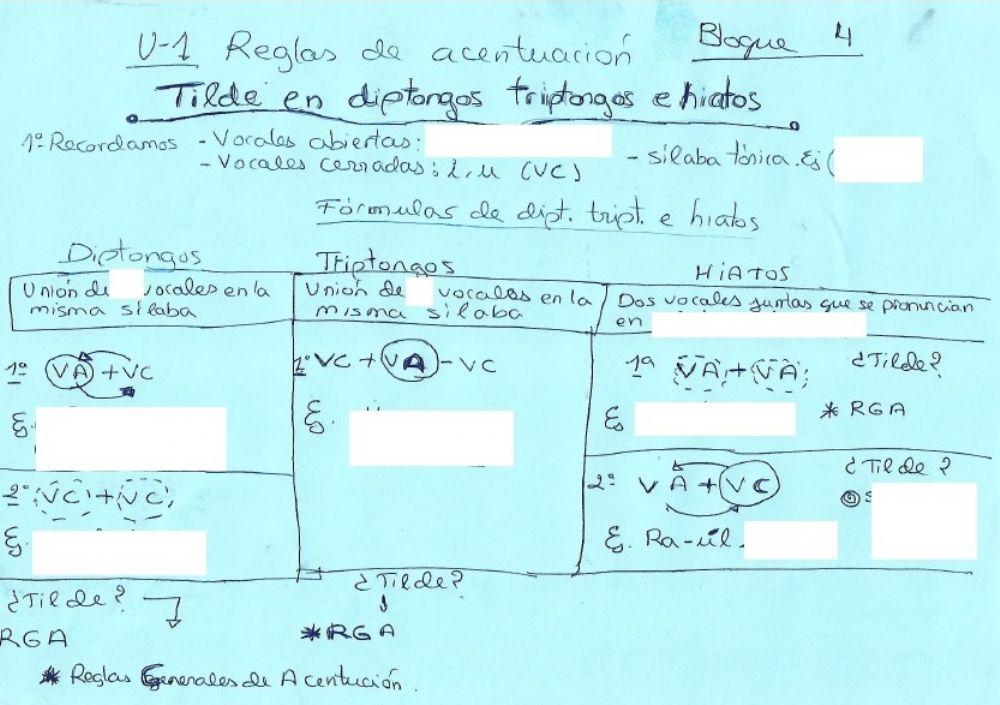 U-1 Reglas de acentuación Bloque 4
Tilde en diptongos triptongos e hiatos
1º Recordamos - Vocales abiertas:
- Vocales cerradas: i, u (VC) - sílaba tónica. Ej (
Fórmulas de dipt. tript. e hiatos
Diptongos
Unión de vocales en la
misma sílaba
1º VA + VC
Ej.
2º VC + VC
Ej.
¿Tilde?
RGA
Triptongos
Unión de vocales en la
misma sílaba
1º VC + VA - VC
Ej.
¿Tilde?
* RGA
HIATOS
Dos vocales juntas que se pronuncian
en
1ª VA + VA ¿Tilde?
Ej * RGA
2º VA + VC ¿Tilde?
Ej. Ra-úl.
* Reglas Generales de Acentución.